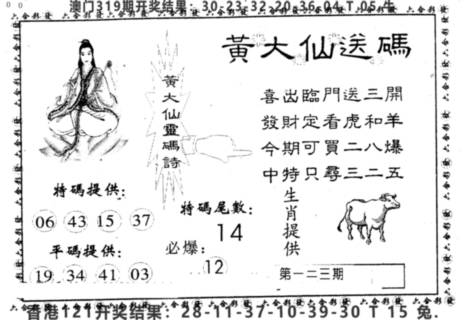 澳门319期开奖结果: 30-23-32-20-36-04 T 05 牛
黃大仙送碼
黃大仙靈碼詩
喜出臨門送三開
發財定看虎和羊
今期可買二八爆
中特只尋三二五
特碼提供:
06 43 15 37
平碼提供:
19 34 41 03
特碼尾數:
14
必爆:
12
生肖提供
第一二三期
香港121开奖结果: 28-11-37-10-39-30 T 15 兔.